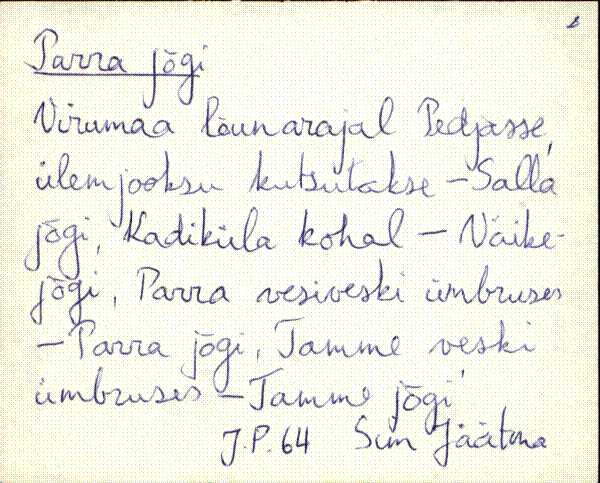 Parra jõgi
Virumaa lõunarajal Pedjasse,
ülemjooksu kutsutakse – Salla
jõgi, Kadiküla kohal – Väike-
jõgi, Parra vesiveski ümbruses
– Parra jõgi, Tamme veski
ümbruses – Tamme jõgi
J.P. 64 Sim Jäätma